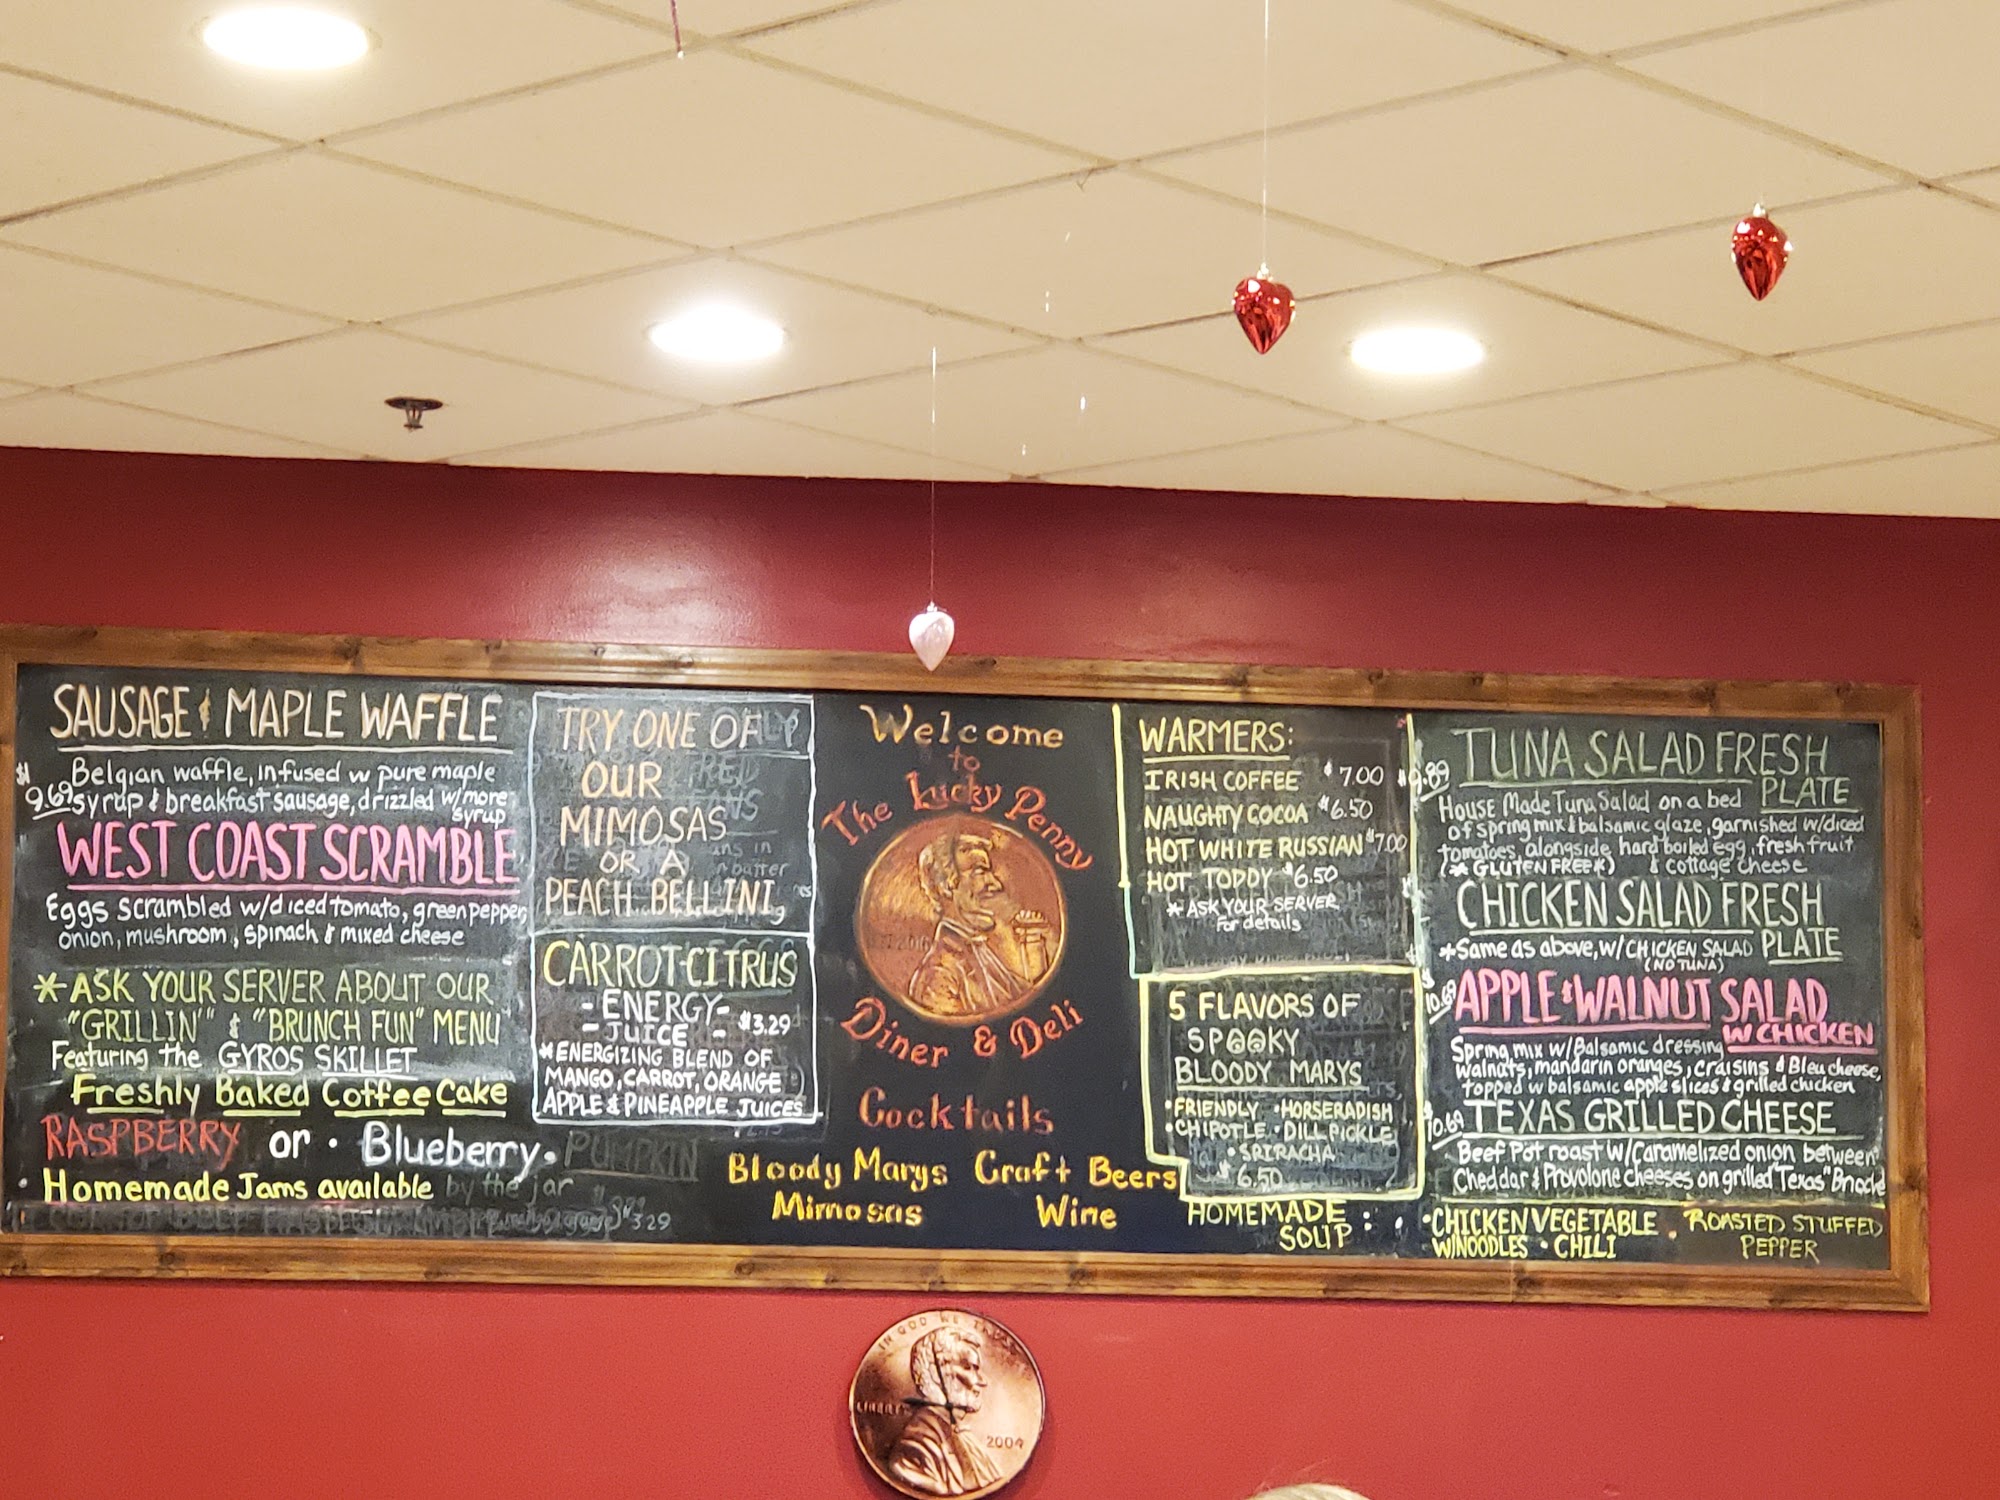 SAUSAGE & MAPLE WAFFLE
$9.69
Belgian waffle, infused w pure maple
syrup & breakfast sausage, drizzled w/more
syrup
WEST COAST SCRAMBLE
Eggs scrambled w/diced tomato, green pepper,
onion, mushroom, spinach & mixed cheese
*ASK YOUR SERVER ABOUT OUR
"GRILLIN'" & "BRUNCH FUN" MENU
Featuring the GYROS SKILLET
Freshly Baked Coffee Cake
RASPBERRY or • Blueberry • PUMPKIN
• Homemade Jams available by the jar
3.29
TRY ONE OF
OUR
MIMOSAS
OR A
PEACH BELLINI
CARROT-CITRUS
-ENERGY-
-JUICE- $3.29
*ENERGIZING BLEND OF
MANGO, CARROT, ORANGE
APPLE & PINEAPPLE JUICES
Welcome
to
The Lucky Penny
Diner & Deli
Cocktails
Bloody Marys Craft Beers
Mimosas Wine
WARMERS:
IRISH COFFEE $7.00
NAUGHTY COCOA $6.50
HOT WHITE RUSSIAN $7.00
HOT TODDY $6.50
*ASK YOUR SERVER
For details
5 FLAVORS OF
SPOOKY
BLOODY MARYS
•FRIENDLY •HORSERADISH
•CHIPOTLE •DILL PICKLE
•SRIRACHA
$6.50
HOMEMADE
SOUP:
•CHICKEN VEGETABLE
W/NOODLES • CHILI
• ROASTED STUFFED
PEPPER
$9.89 TUNA SALAD FRESH
PLATE
House Made Tuna Salad on a bed
of spring mix & balsamic glaze, garnished w/diced
tomatoes alongside hard boiled egg, fresh fruit
(*GLUTEN FREE*) & cottage cheese
CHICKEN SALAD FRESH
PLATE
*Same as above, w/CHICKEN SALAD
(NO TUNA)
$10.69 APPLE & WALNUT SALAD
W CHICKEN
Spring mix w/Balsamic dressing
walnuts, mandarin oranges, craisins & Bleu cheese,
topped w balsamic apple slices & grilled chicken
$10.69 TEXAS GRILLED CHEESE
Beef Pot roast w/Caramelized onion between
Cheddar & Provolone cheeses on grilled "Texas" Brioche
IN GOD WE TRUST
LIBERTY
2004